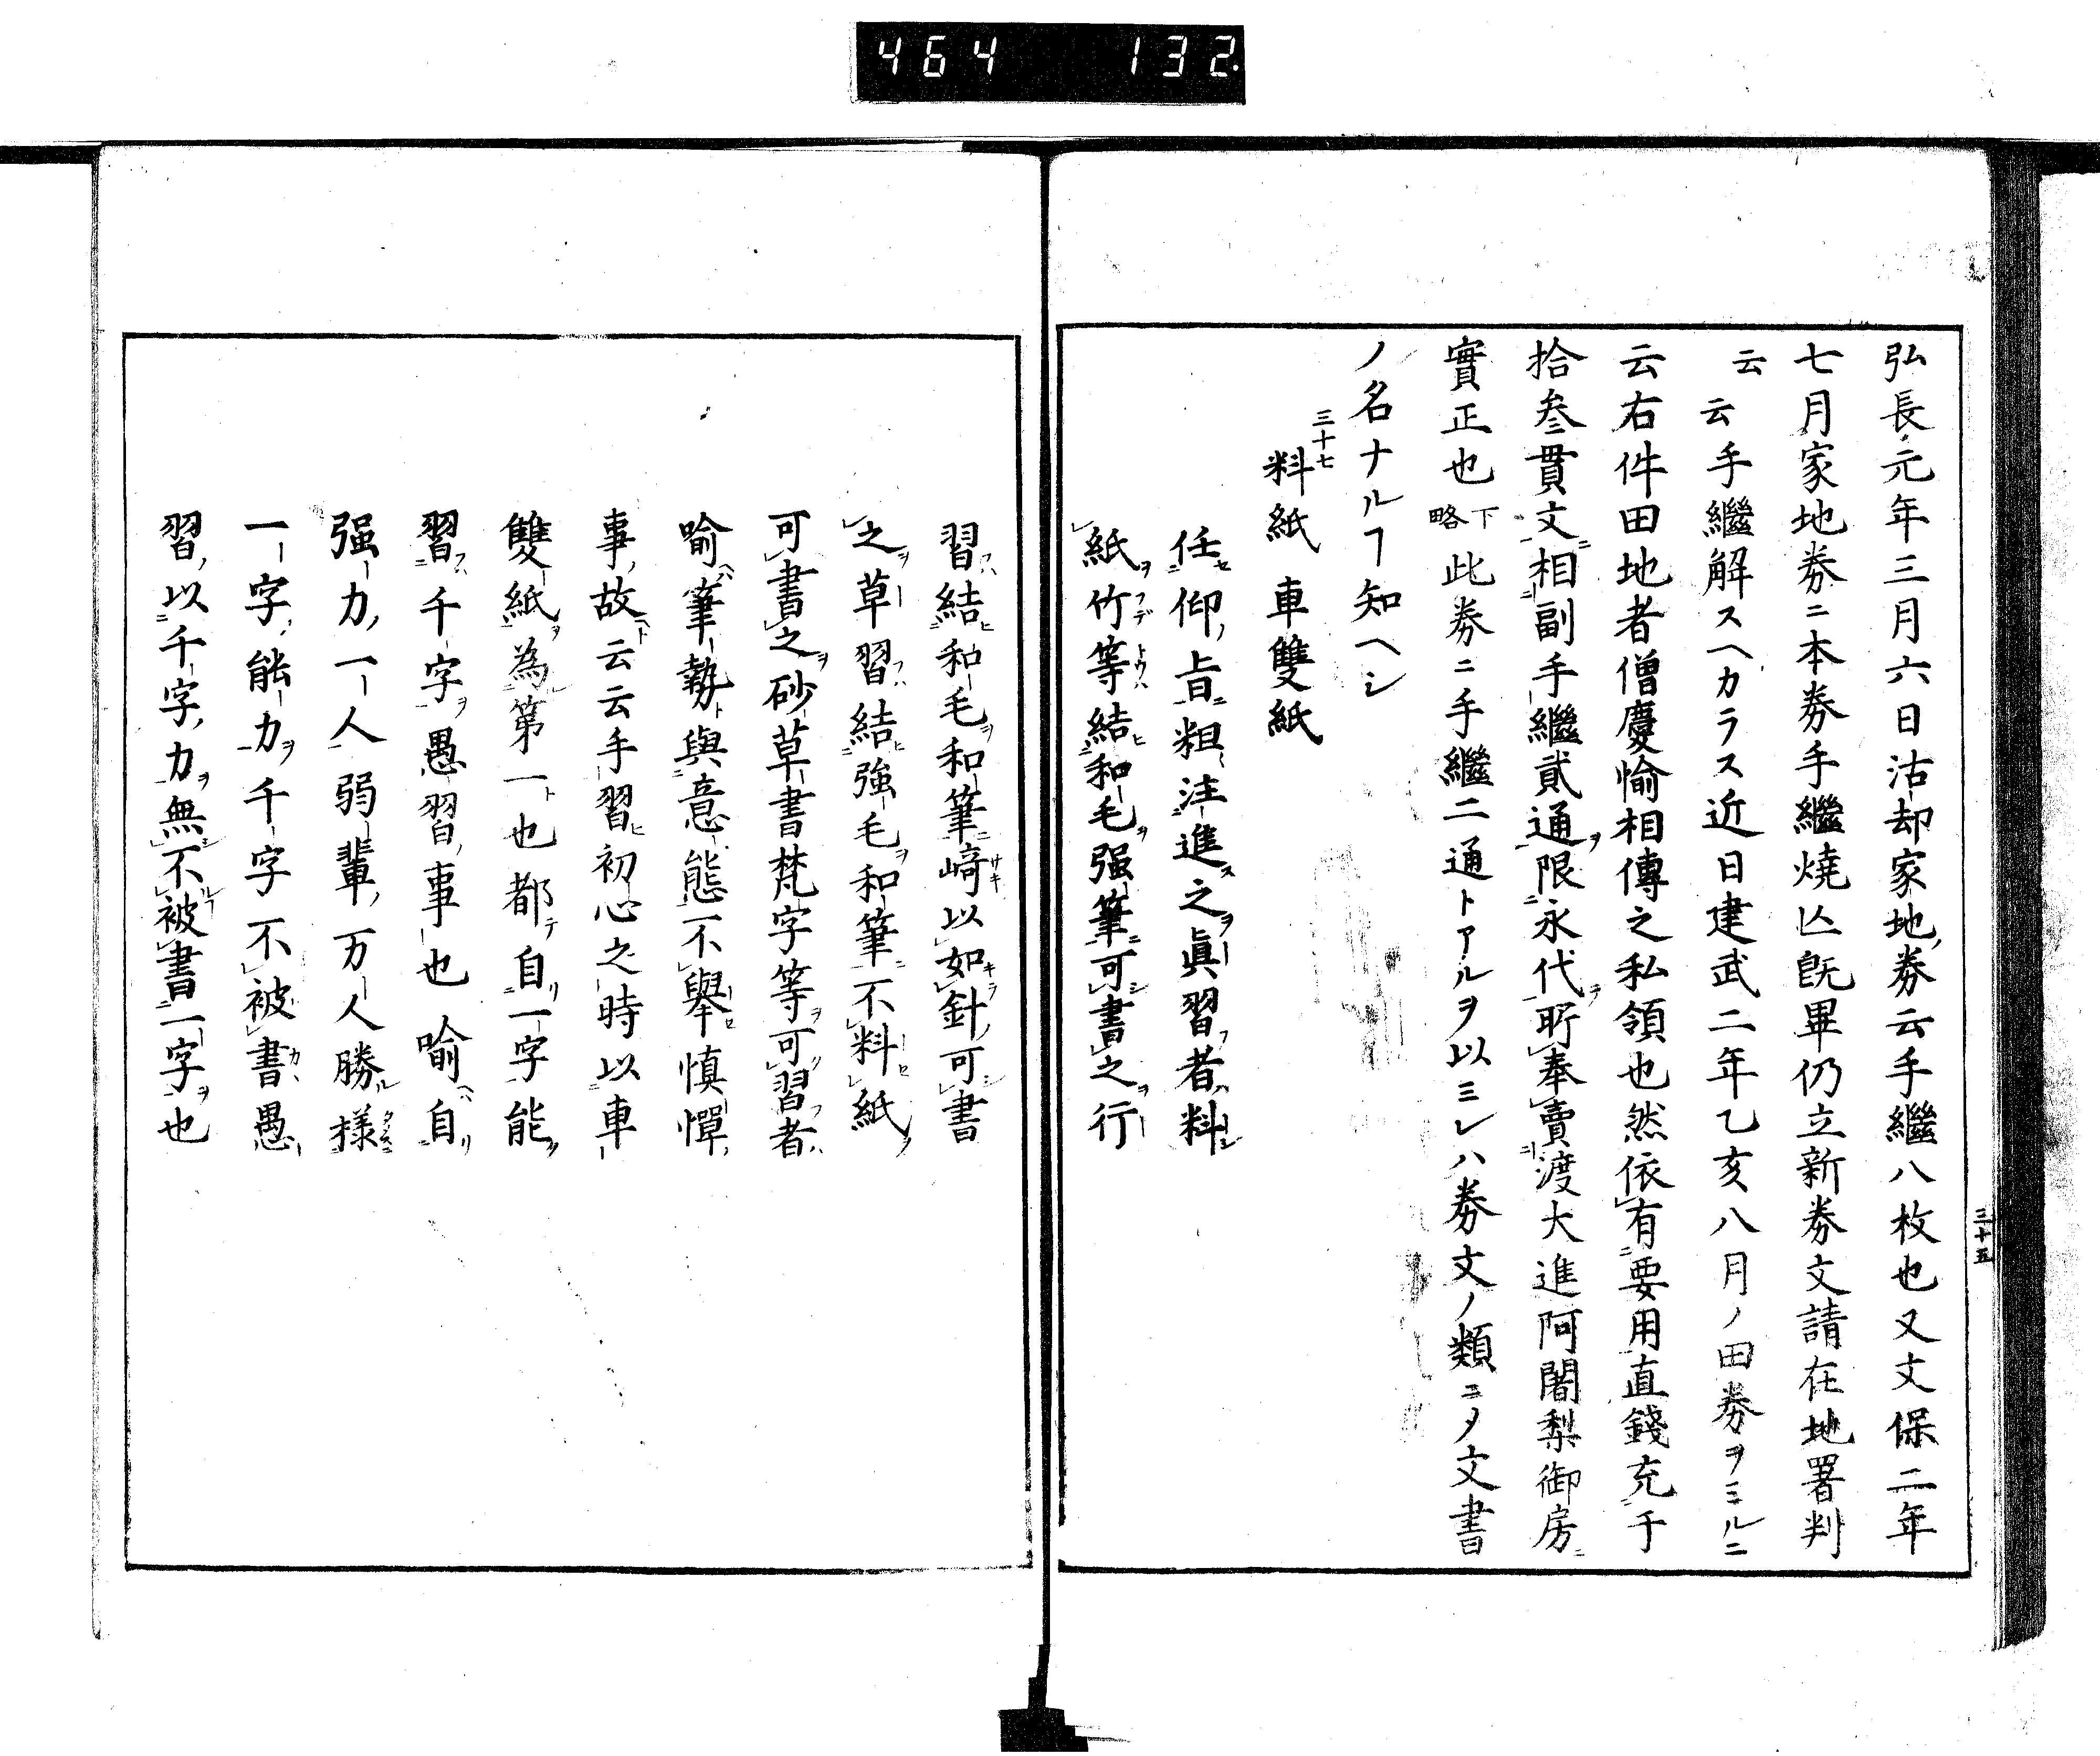 464 132.
三十五
弘長元年三月六日沽却家地券云手繼八枚也又文保二年
七月家地券ニ本券手繼燒亾既畢仍立新券文請在地署判
云云手繼解スヘカラス近日建武二年乙亥八月ノ田券ヲミルニ
云右件田地者僧慶愉相傳之私領也然依有要用直錢充于
拾叁貫文相副手繼貳通限永代所奉賣渡大進阿闍梨御房
實正也下略此券ニ手繼二通トアルヲ以ミレハ券文ノ類ニノ文書
ノ名ナルヿ知ヘシ
三十七
料紙 車雙紙
任仰旨粗注進之眞習者料
紙竹等結和毛强筆可書之行
習結和毛和筆﨑以如針可書
之草習結強毛和筆不料紙
可書之砂草書梵字等可習者
喻筆勢與意態不擧慎憚
事故云云手習初心之時以車
雙紙為第一也都自一字能
習千字愚習事也喻自
强力一人弱輩万人勝様
一字能力千字不被書愚
習以千字力無不被書一字也